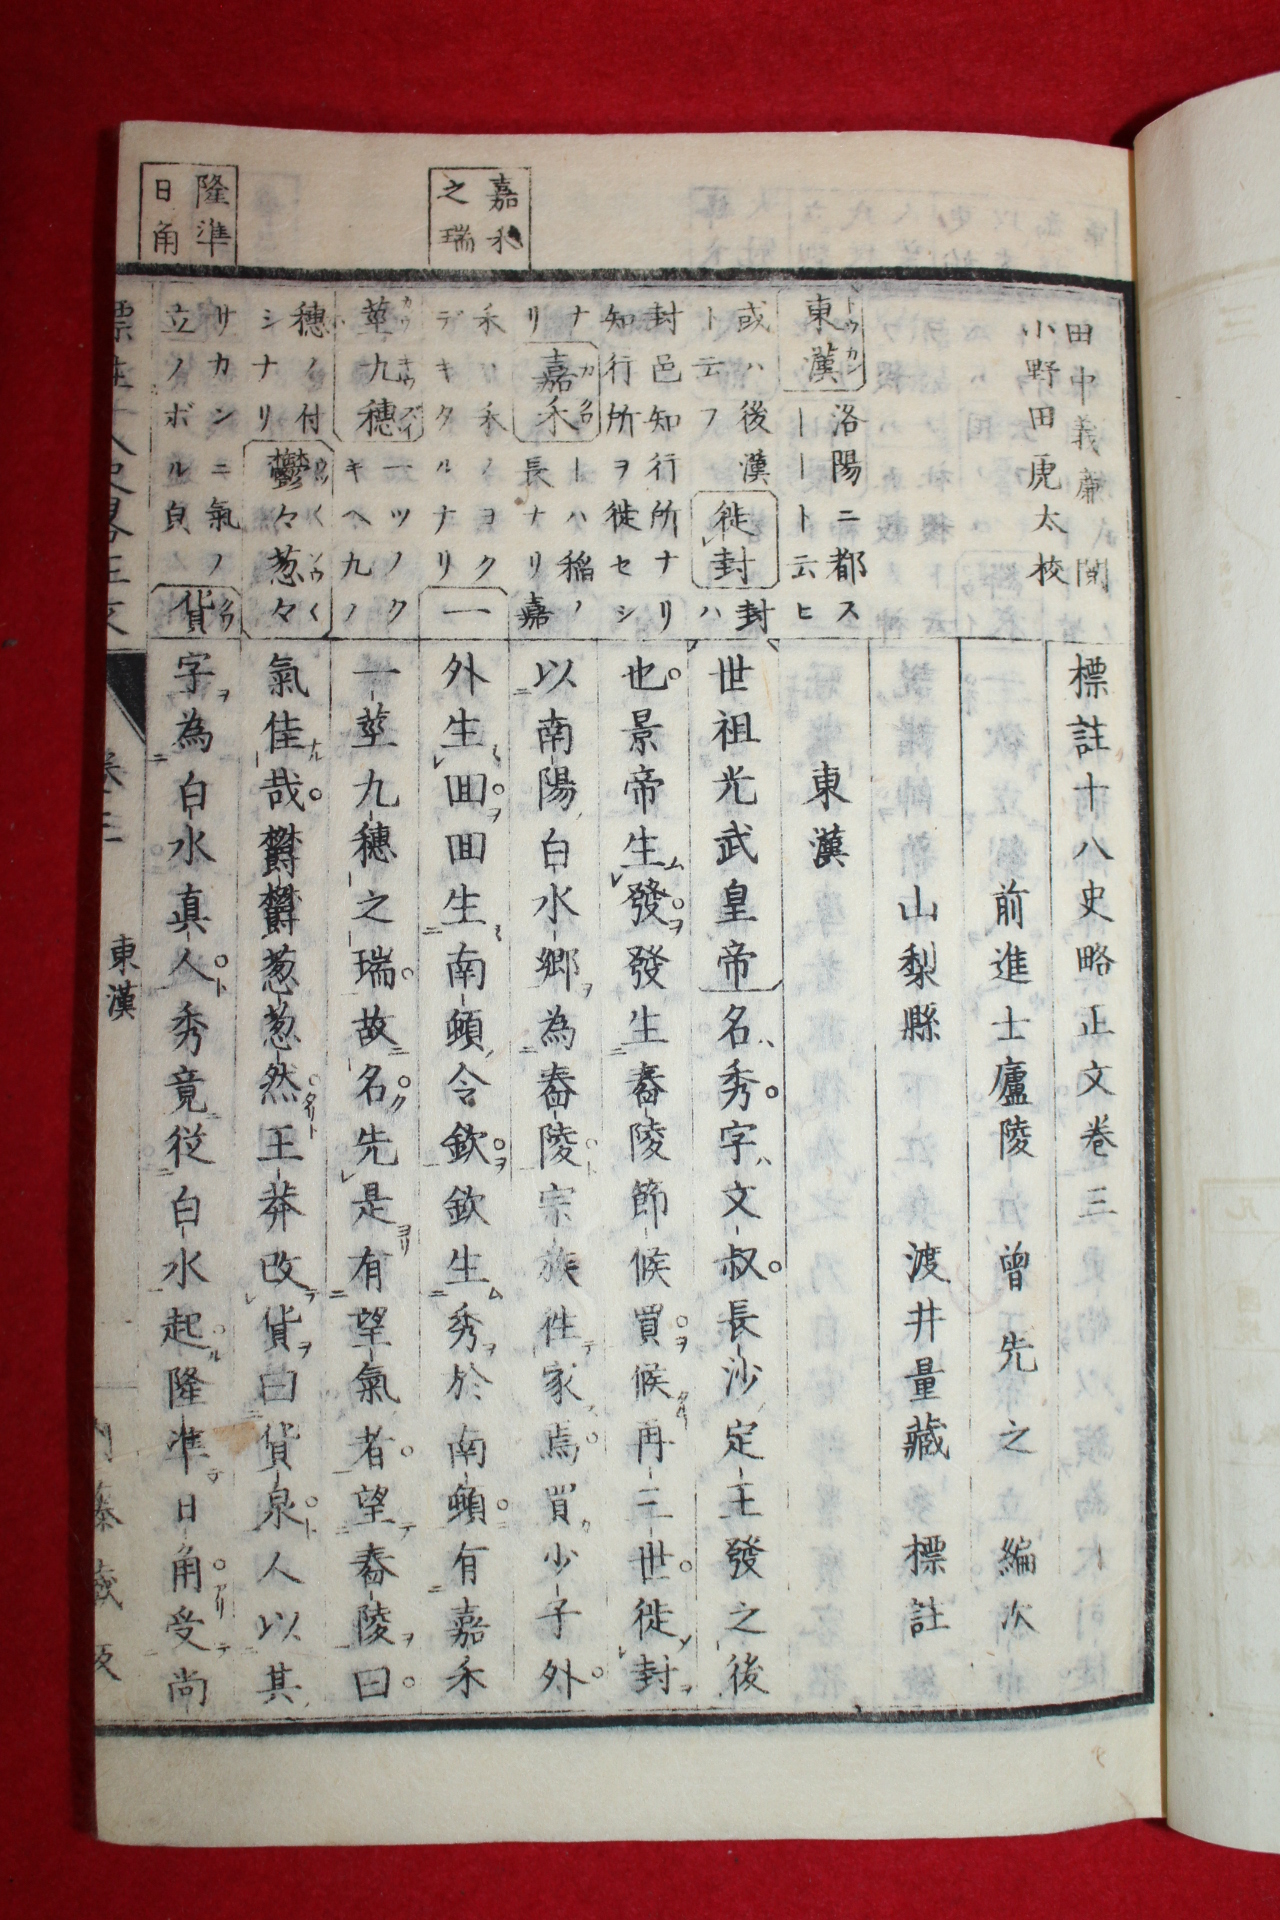 嘉禾之瑞
隆準日角
田中義廉閲
小野田虎太校
東漢
洛陽ニ都ス
ーート云ヒ
或ハ後漢
ト云フ
徙封
封
ハ
封邑知行所ナリ
知行所ヲ徙セシ
ナ
リ
嘉禾
ーハ稲ノ
長ナリ嘉
禾ハ禾ノヨク
デキタルナリ
一
莖九穗
一ツノク
キヘ九ノ
穗ノ付
シナリ
鬱々葱々
サカンニ氣ノ
立ノボル皃
貨
標註十八史略正文卷三
前進士廬陵 曾先之 編次
山梨縣 渡井量藏 標註
東漢
世祖光武皇帝名秀字文叔長沙定王發之後
也景帝生發發生舂陵節候買候再二世徙封
以南陽白水鄉為舂陵宗族往家焉買少子外
外生回回生南頓令欽欽生秀於南頓有嘉禾
一莖九穗之瑞故名先是有望氣者望舂陵曰
氣佳哉鬱鬱葱葱然王莽改貨曰貨泉人以其
字為白水真人秀竟從白水起隆準日角受尚
東漢